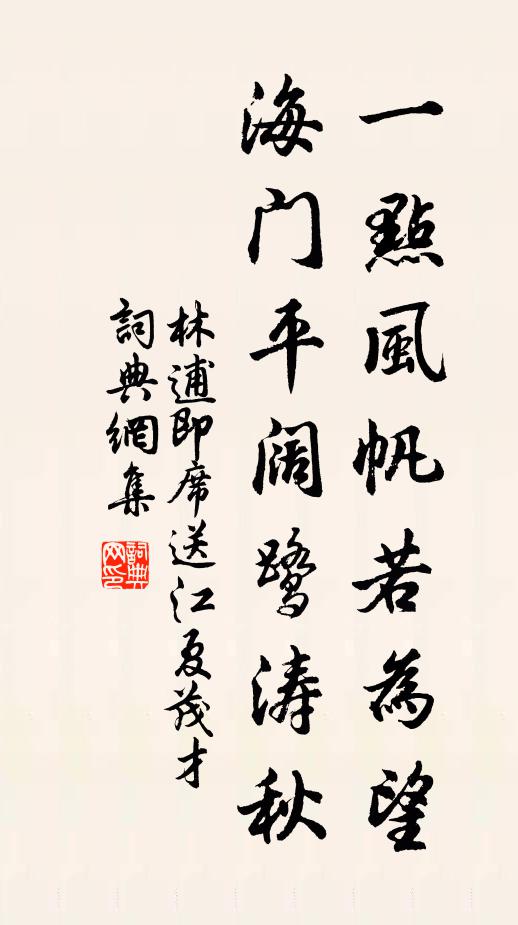 一點風帆若為望
海门平阔鹭涛秋
林逋即席送江夏茂才
詞典網集
詞典网印